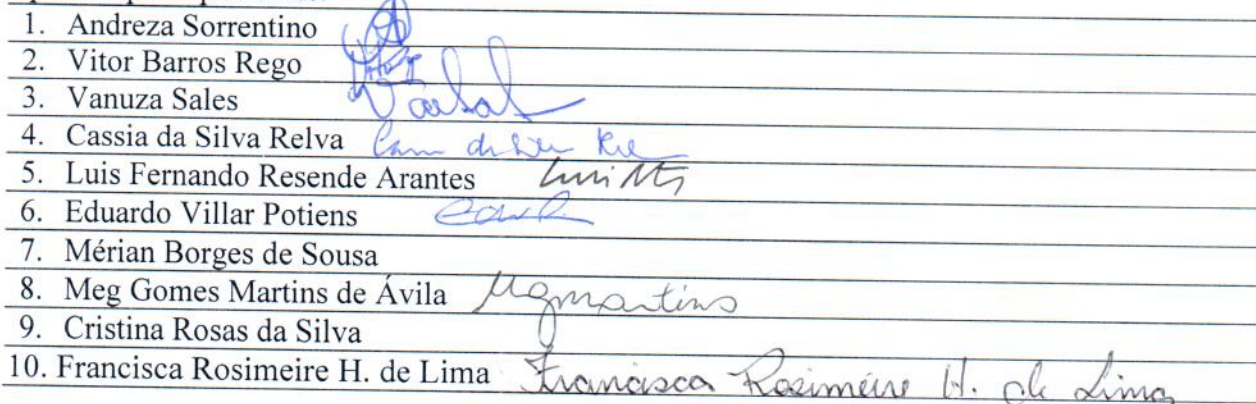 1. Andreza Sorrentino
2. Vitor Barros Rego
3. Vanuza Sales
4. Cassia da Silva Relva
5. Luis Fernando Resende Arantes
6. Eduardo Villar Potiens
7. Mérian Borges de Sousa
8. Meg Gomes Martins de Ávila Mgmartins
9. Cristina Rosas da Silva
10. Francisca Rosimeire H. de Lima Francisca Rosimeire H. de Lima